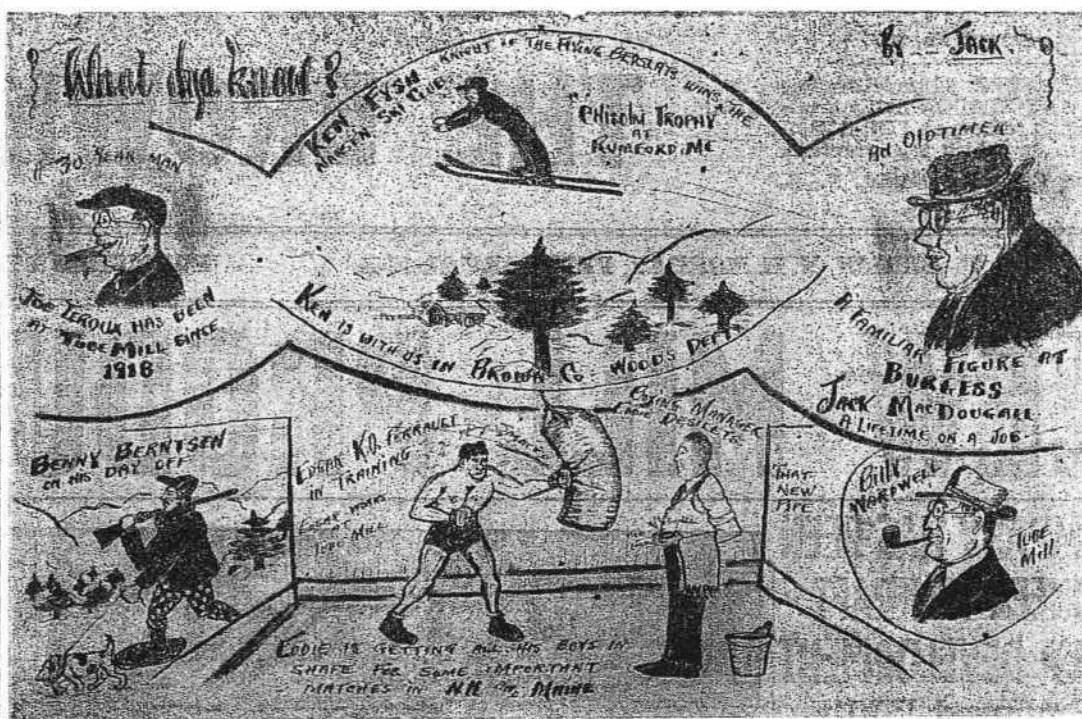 What dya know?
By Jack.
KEN FYSH KNIGHT OF THE FLYING WINS THE
NANSEN SKI CLUB
CHISOLM TROPHY
AT
RUMFORD, ME
A 30 YEAR MAN
JOE LEROUX HAS BEEN
AT TUBE MILL SINCE
1916
KEN IS WITH US IN BROWN CO. WOODS DEPT.
AN OLDTIMER
A FAMILIAR FIGURE AT
BURGESS
JACK MACDOUGALL
A LIFETIME ON A JOB
BENNY BERNTSEN
ON HIS DAY OFF
EDGAR K.O. PERRAULT
IN TRAINING
EDGAR WORKS
AT
TUBE MILL
SMACK
BOXING MANAGER
EDDIE DESILETS
EDDIE IS GETTING ALL HIS BOYS IN
SHAPE FOR SOME IMPORTANT
MATCHES IN N.H. MAINE
THAT
NEW
PIPE
BILLY
WARDWELL
TUBE
MILL.